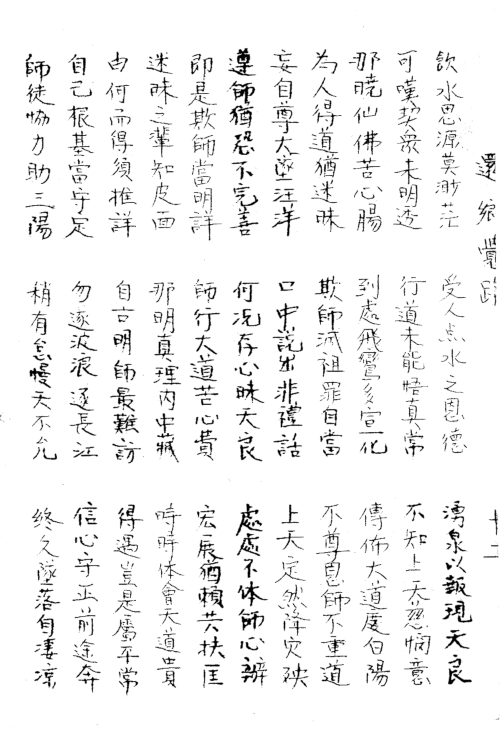 還鄉覺路
飲水思源莫渺茫　受人点水之恩德　湧泉以報現天良
可嘆契衆未明透　行道未能悟真常　不知上天慈憫意
那曉仙佛苦心腸　到處飛鸞多宣化　傳佈大道度白陽
為人得道猶迷昧　欺師滅祖罪自當　不尊恩師不重道
妄自尊大墜汪洋　口中説出非禮話　上天定然降灾殃
遵師猶恐不完善　何况存心昧天良　處處不体師心辦
即是欺師當明詳　師行大道苦心費　宏展猶賴共扶匡
迷昧之輩知皮面　那明真理内中藏　時時体會天道貴
由何而得須推詳　自古明師最難訪　得遇豈是屬平常
自己根基當守定　勿逐波浪逐長江　信心守正前途奔
師徒協力助三陽　稍有怠慢天不允　終久墜落自凄凉